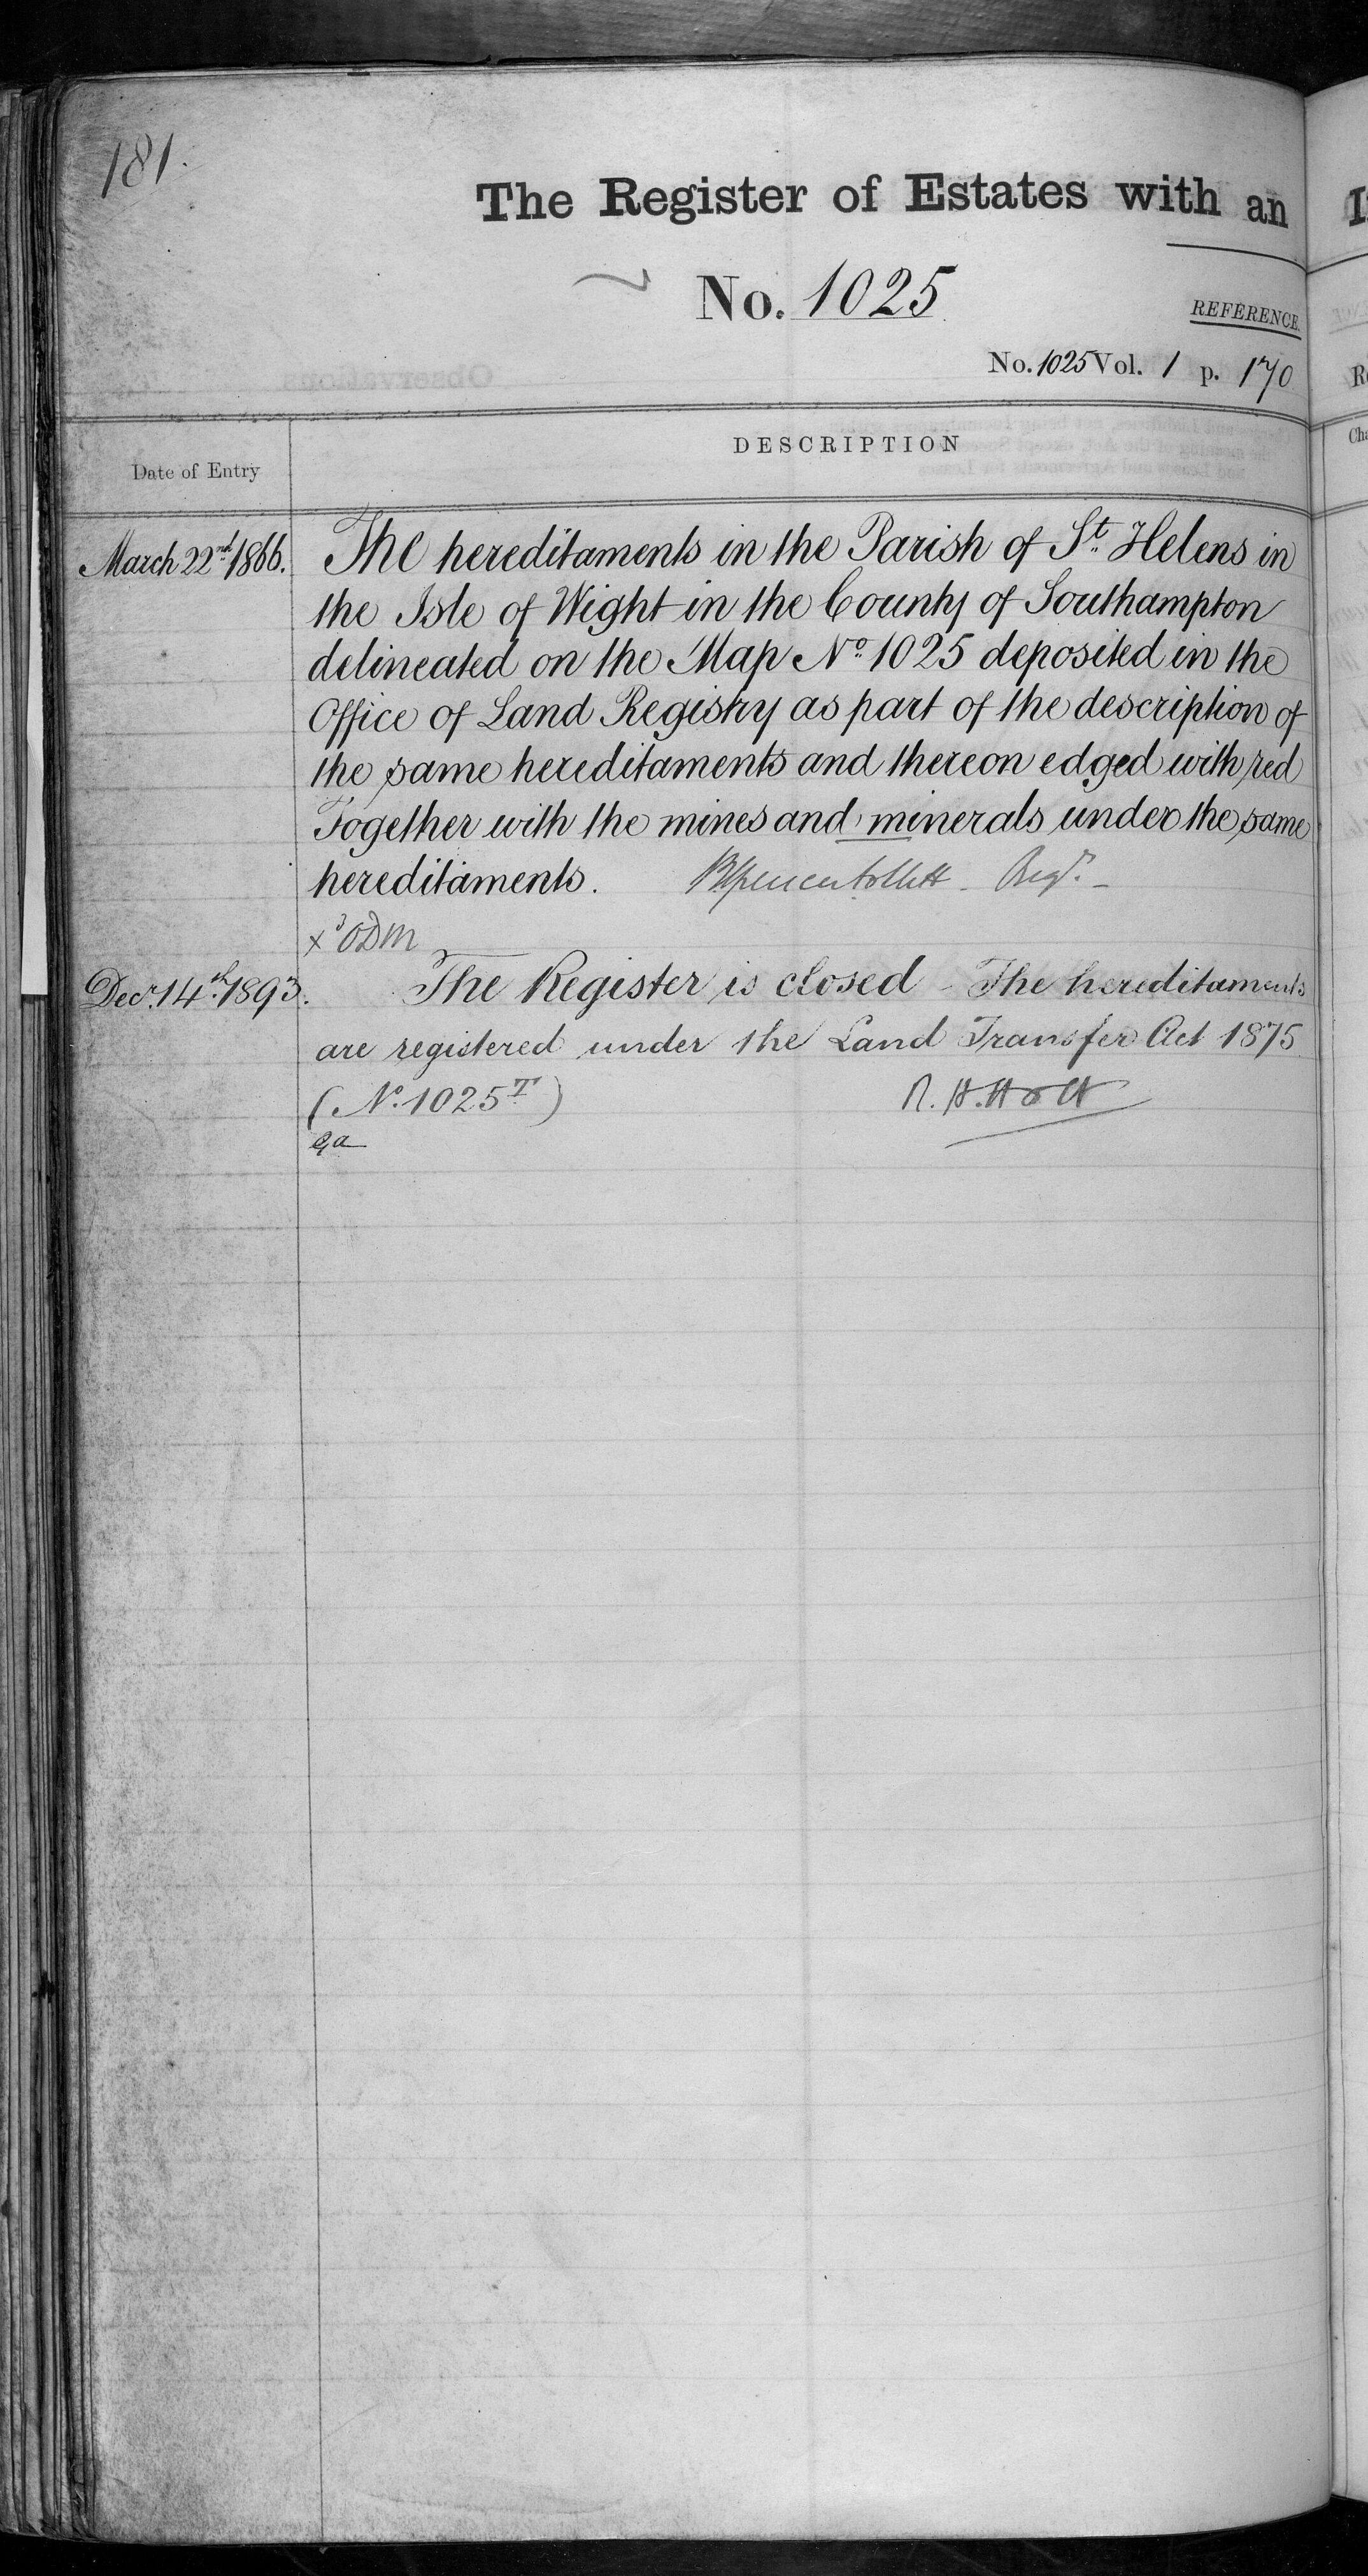 181.
The Register of Estates with an
No. 1025
REFERENCE.
No. 1025 Vol. 1 p. 170
Date of Entry
DESCRIPTION
March 22nd 1866. The hereditaments in the Parish of St. Helens in
the Isle of Wight in the County of Southampton
delineated on the Map No. 1025 deposited in the
Office of Land Registry as part of the description of
the same hereditaments and thereon edged with red
Together with the mines and minerals under the same
hereditaments. Brent Spencer Follett Regr.
Decr. 14th 1893. The Register is closed - The hereditaments
are registered under the Land Transfer Act 1875
(No. 1025T) R. H. Holt